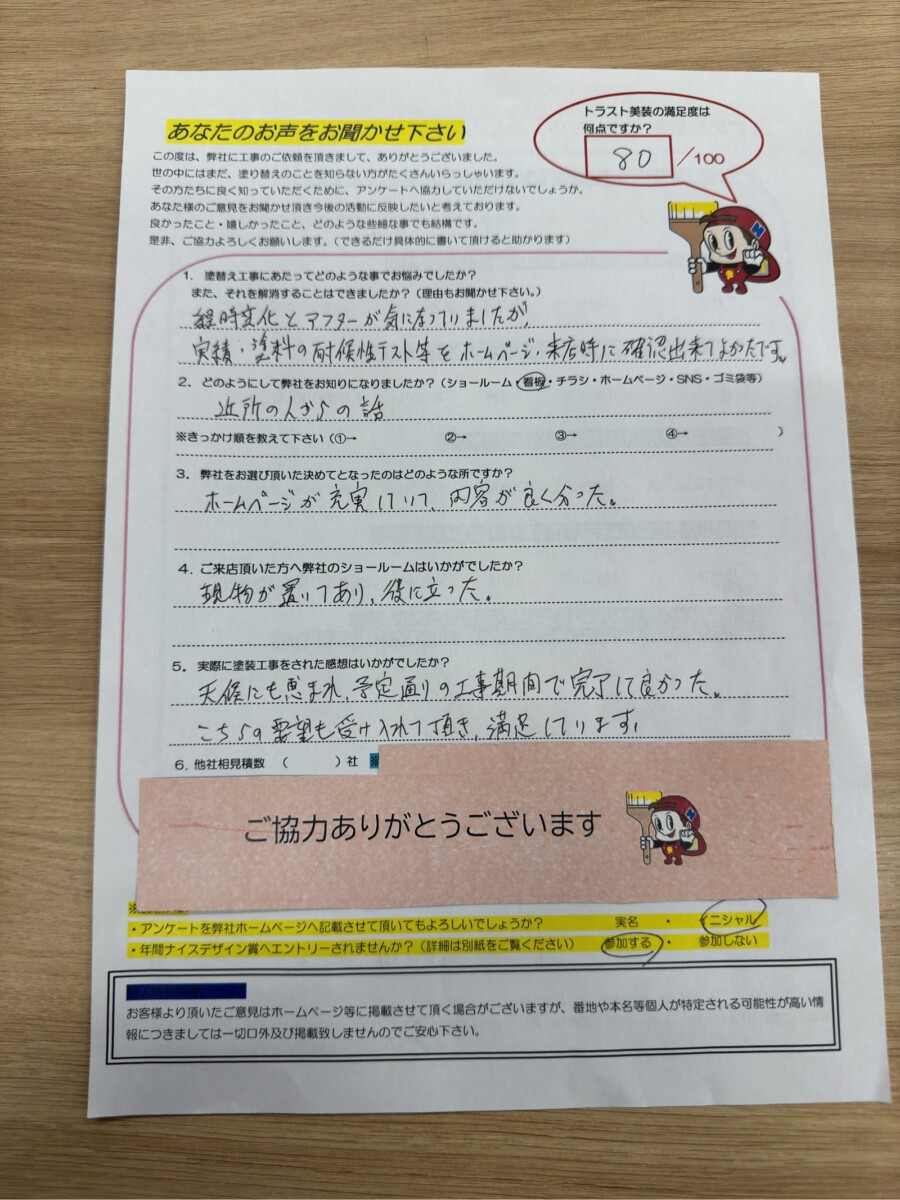 あなたのお声をお聞かせ下さい
トラスト美装の満足度は
何点ですか？
80 /100
この度は、弊社に工事のご依頼を頂きまして、ありがとうございました。
世の中にはまだ、塗り替えのことを知らない方がたくさんいらっしゃいます。
その方たちに良く知っていただくために、アンケートへ協力していただけないでしょうか。
あなた様のご意見をお聞かせ頂き今後の活動に反映したいと考えております。
良かったこと・嬉しかったこと、どのような些細な事でも結構です。
是非、ご協力よろしくお願いします。（できるだけ具体的に書いて頂けると助かります）
1．塗替え工事にあたってどのような事でお悩みでしたか？
また、それを解消することはできましたか？（理由もお聞かせ下さい。）
経時変化とアフターが気になっていましたが、
実績・塗料の耐候性テスト等をホームページ・来店時に確認出来てよかたです。
2．どのようにして弊社をお知りになりましたか？（ショールーム・看板・チラシ・ホームページ・SNS・ゴミ袋等）
近所の人からの話
※きっかけ順を教えて下さい（①→ ②→ ③→ ④→ ）
3．弊社をお選び頂いた決めてとなったのはどのような所ですか？
ホームページが充実していて、内容が良く分った。
4．ご来店頂いた方へ弊社のショールームはいかがでしたか？
現物が置いてあり、役に立った。
5．実際に塗装工事をされた感想はいかがでしたか？
天候にも恵まれ、予定通りの工事期間で完了して良かった。
こちらの要望も受け入れて頂き、満足しています。
6．他社相見積数 （ ）社 ※
ご協力ありがとうございます
・アンケートを弊社ホームページへ記載させて頂いてもよろしいでしょうか？ 実名 ・ イニシャル
・年間ナイスデザイン賞へエントリーされませんか？（詳細は別紙をご覧ください） 参加する ・ 参加しない
お客様より頂いたご意見はホームページ等に掲載させて頂く場合がございますが、番地や本名等個人が特定される可能性が高い情
報につきましては一切口外及び掲載致しませんのでご安心下さい。